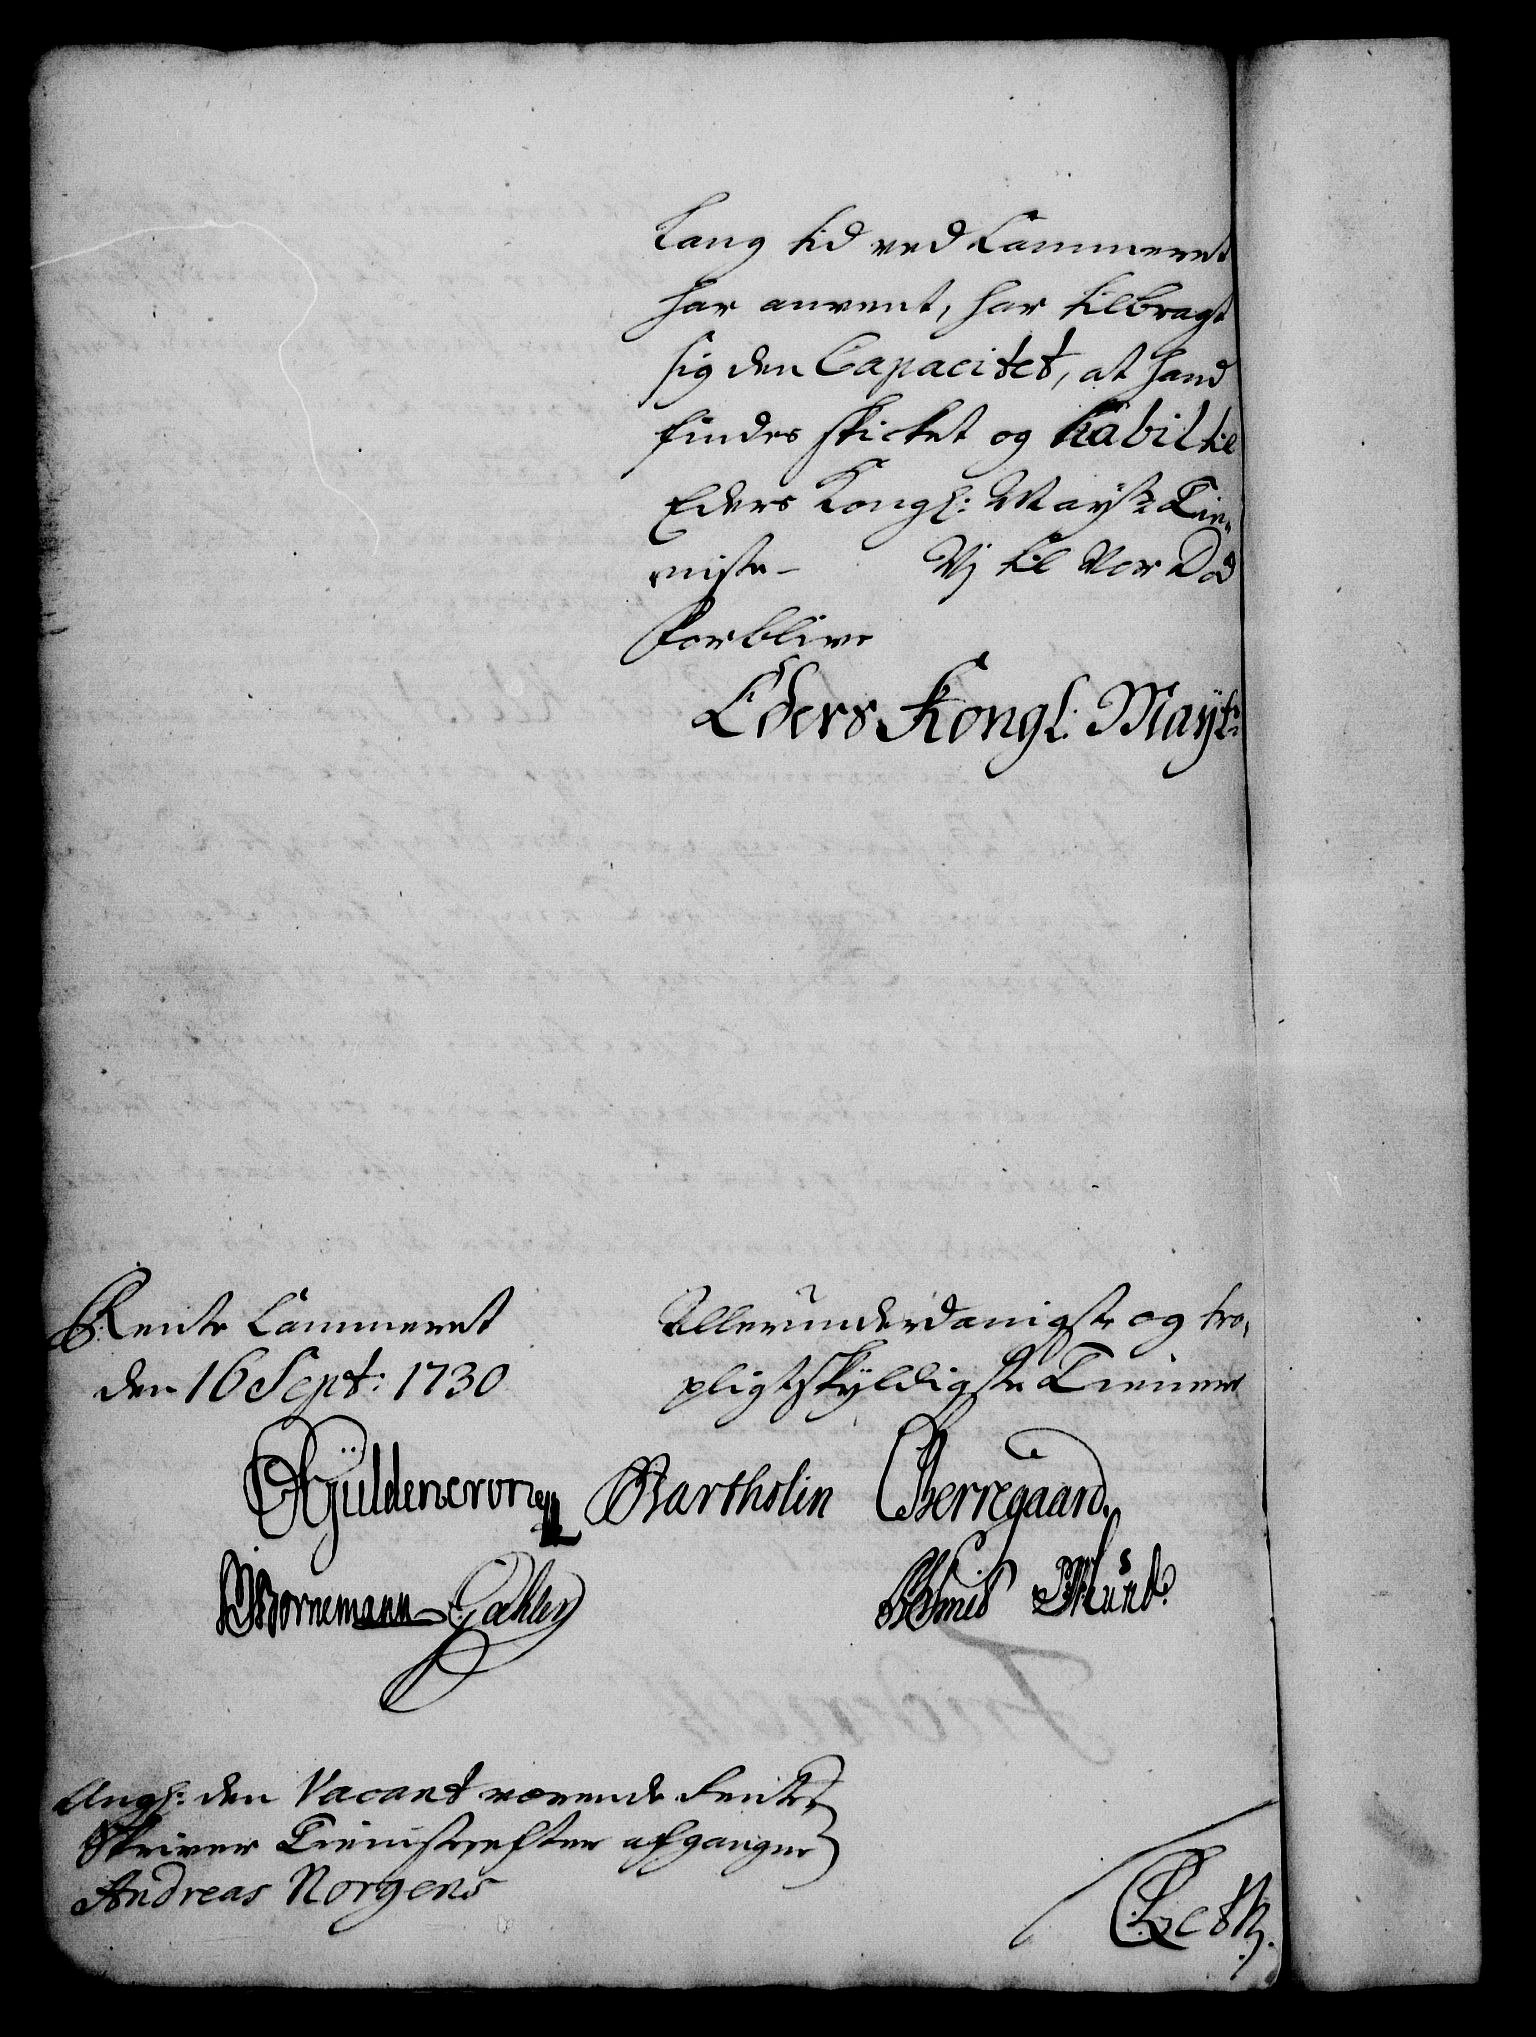 lang tid ved Cammeret
har anvent, har tilbragt
sig den Capacitet, at hand
findes skicket og habil til
Eders Kongl: Mayts Tie-
niste- Vj til Vor Död
forblive
Eders Kongl: Mayts:
Rente Cammeret
den 16 Sept: 1730
Allerunderdanigste og tro-
pligtskyldigste Tienere
Güldencrone Bartholin Berregaard.
Bornemann
Angl: den Vacant værende Rente
Skriver Tieniste, efter afgangne
Andreas Norgens